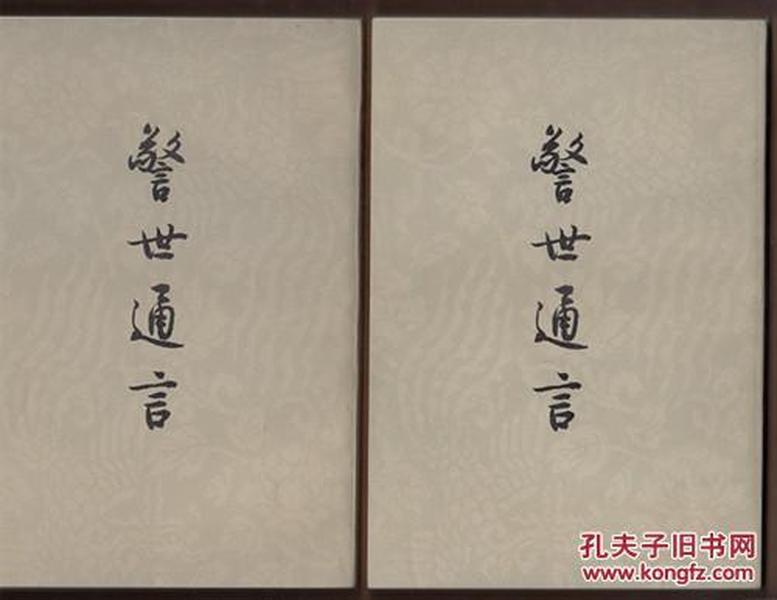 警世通言
警世通言
孔夫子旧书网
www.kongfz.com